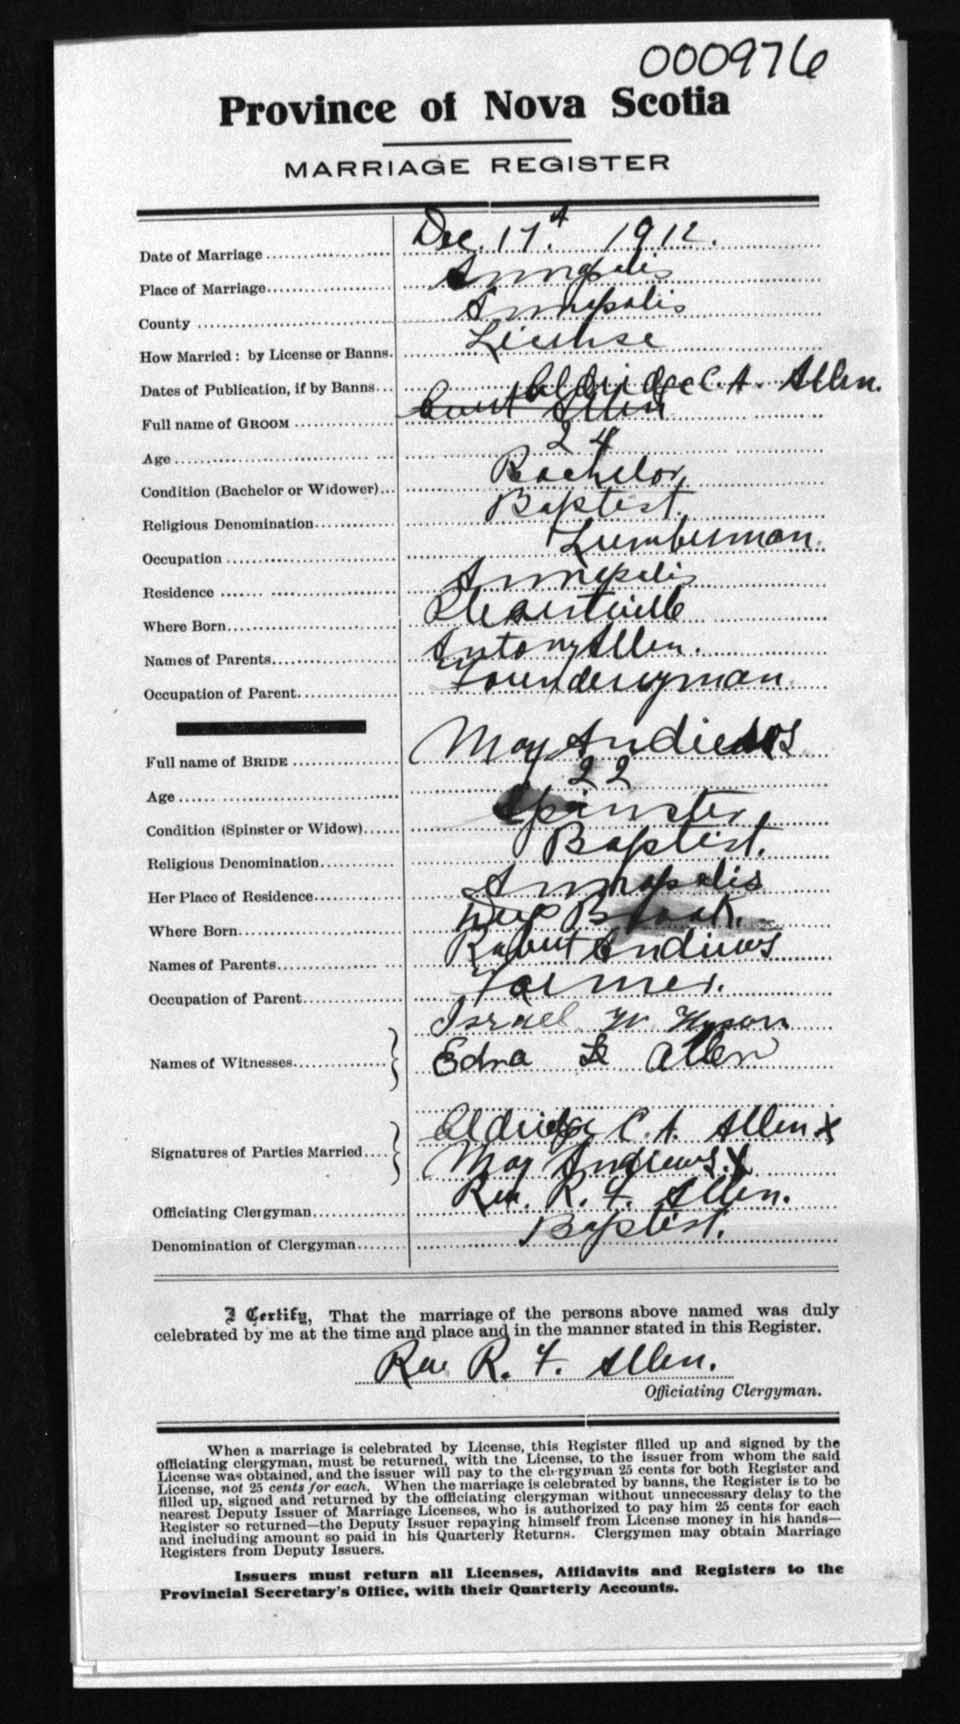 000976
Province of Nova Scotia
MARRIAGE REGISTER
Date of Marriage Dec. 17th 1912.
Place of Marriage Annapolis
County Annapolis
How Married: by License or Banns. License
Dates of Publication, if by Banns Eldridge C. A. Allen.
Full name of GROOM Allen
Age 24
Condition (Bachelor or Widower) Bachelor
Religious Denomination Baptist.
Occupation Lumberman.
Residence Annapolis
Where Born
Names of Parents Antony Allen.
Occupation of Parent Founderyman.
Full name of BRIDE May Andrews
Age 22
Condition (Spinster or Widow) Spinster
Religious Denomination Baptist.
Her Place of Residence Annapolis
Where Born Deep Brook.
Names of Parents Robert Andrews
Occupation of Parent Farmer.
Israel W Hyson
Names of Witnesses
Edna Le Allen
Eldridge C. A. Allen X
Signatures of Parties Married
May Andrews. X
Officiating Clergyman Rev. R. F. Allen.
Denomination of Clergyman Baptist.
I Certify, That the marriage of the persons above named was duly
celebrated by me at the time and place and in the manner stated in this Register.
Rev R. F. Allen.
Officiating Clergyman.
When a marriage is celebrated by License, this Register filled up and signed by the
officiating clergyman, must be returned, with the License, to the issuer from whom the said
License was obtained, and the issuer will pay to the clergyman 25 cents for both Register and
License, not 25 cents for each. When the marriage is celebrated by banns, the Register is to be
filled up, signed and returned by the officiating clergyman without unnecessary delay to the
nearest Deputy Issuer of Marriage Licenses, who is authorized to pay him 25 cents for each
Register so returned—the Deputy Issuer repaying himself from License money in his hands—
and including amount so paid in his Quarterly Returns. Clergymen may obtain Marriage
Registers from Deputy Issuers.
Issuers must return all Licenses, Affidavits and Registers to the
Provincial Secretary's Office, with their Quarterly Accounts.